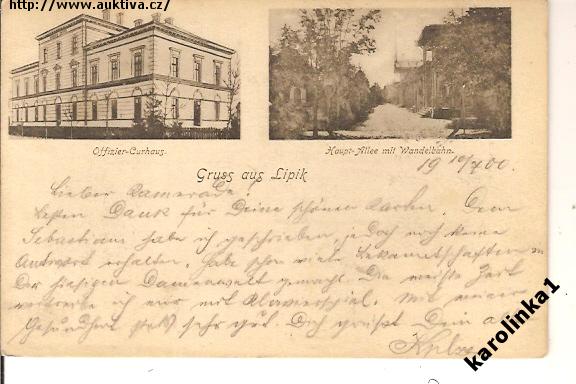 http://www.auktiva.cz/
Offizier-Curhaus.
Haupt-Allee mit Wandelbahn.
Gruss aus Lipik
19 10/7 00.
Lieber Kamerade!
Besten Dank für Deine schönen Karten. Dem
Sebastiani habe ich geschrieben, jedoch noch keine
Antwort erhalten. Habe schon viele Bekanntschaften in
Der hiesigen Damenwelt gemacht. Die meiste Zeit
ich mir mit Klavierspiel. Mit meiner
Gesundheit geht sehr gut. Dich grüsst Dein
karolinka1